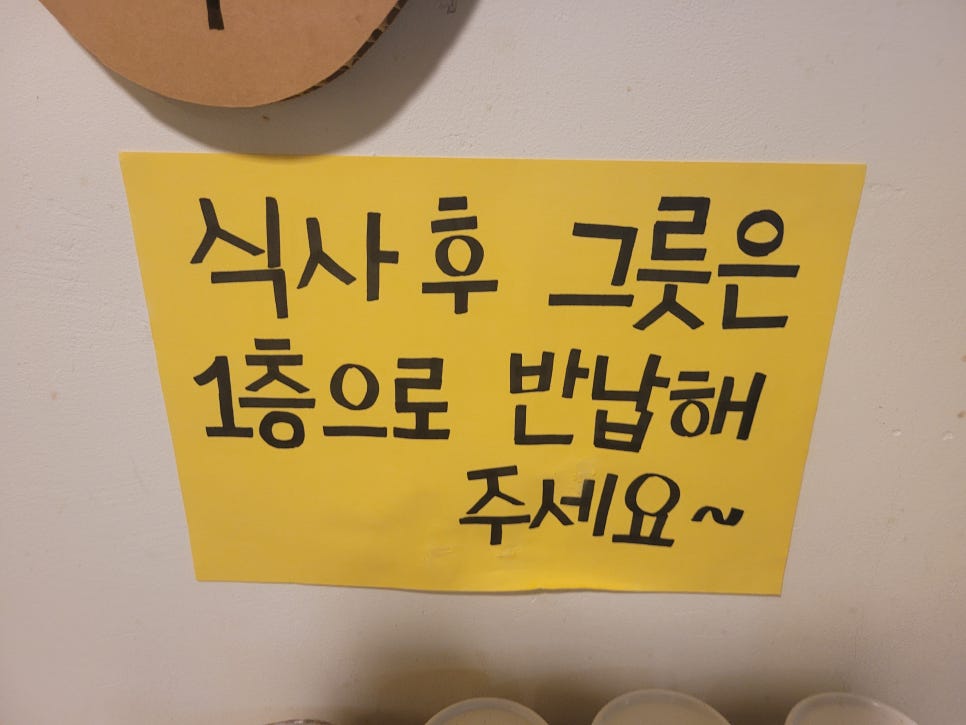 식사 후 그릇은
1층으로 반납해
주세요~